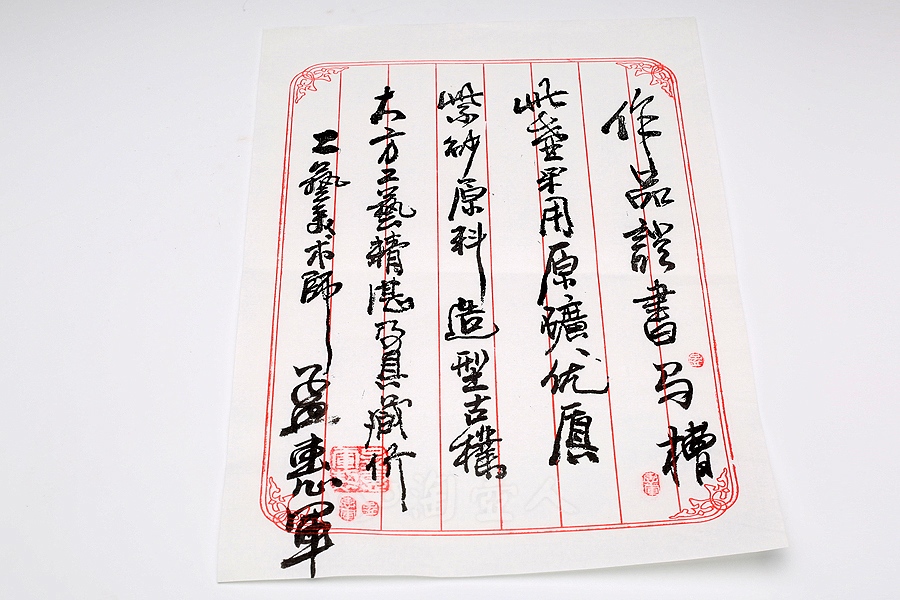 作品證書 马槽
此壺采用原礦优质
紫砂原料造型古樸
大方工藝精湛乃具藏价
工藝美术師 孟惠軍
淘壶人